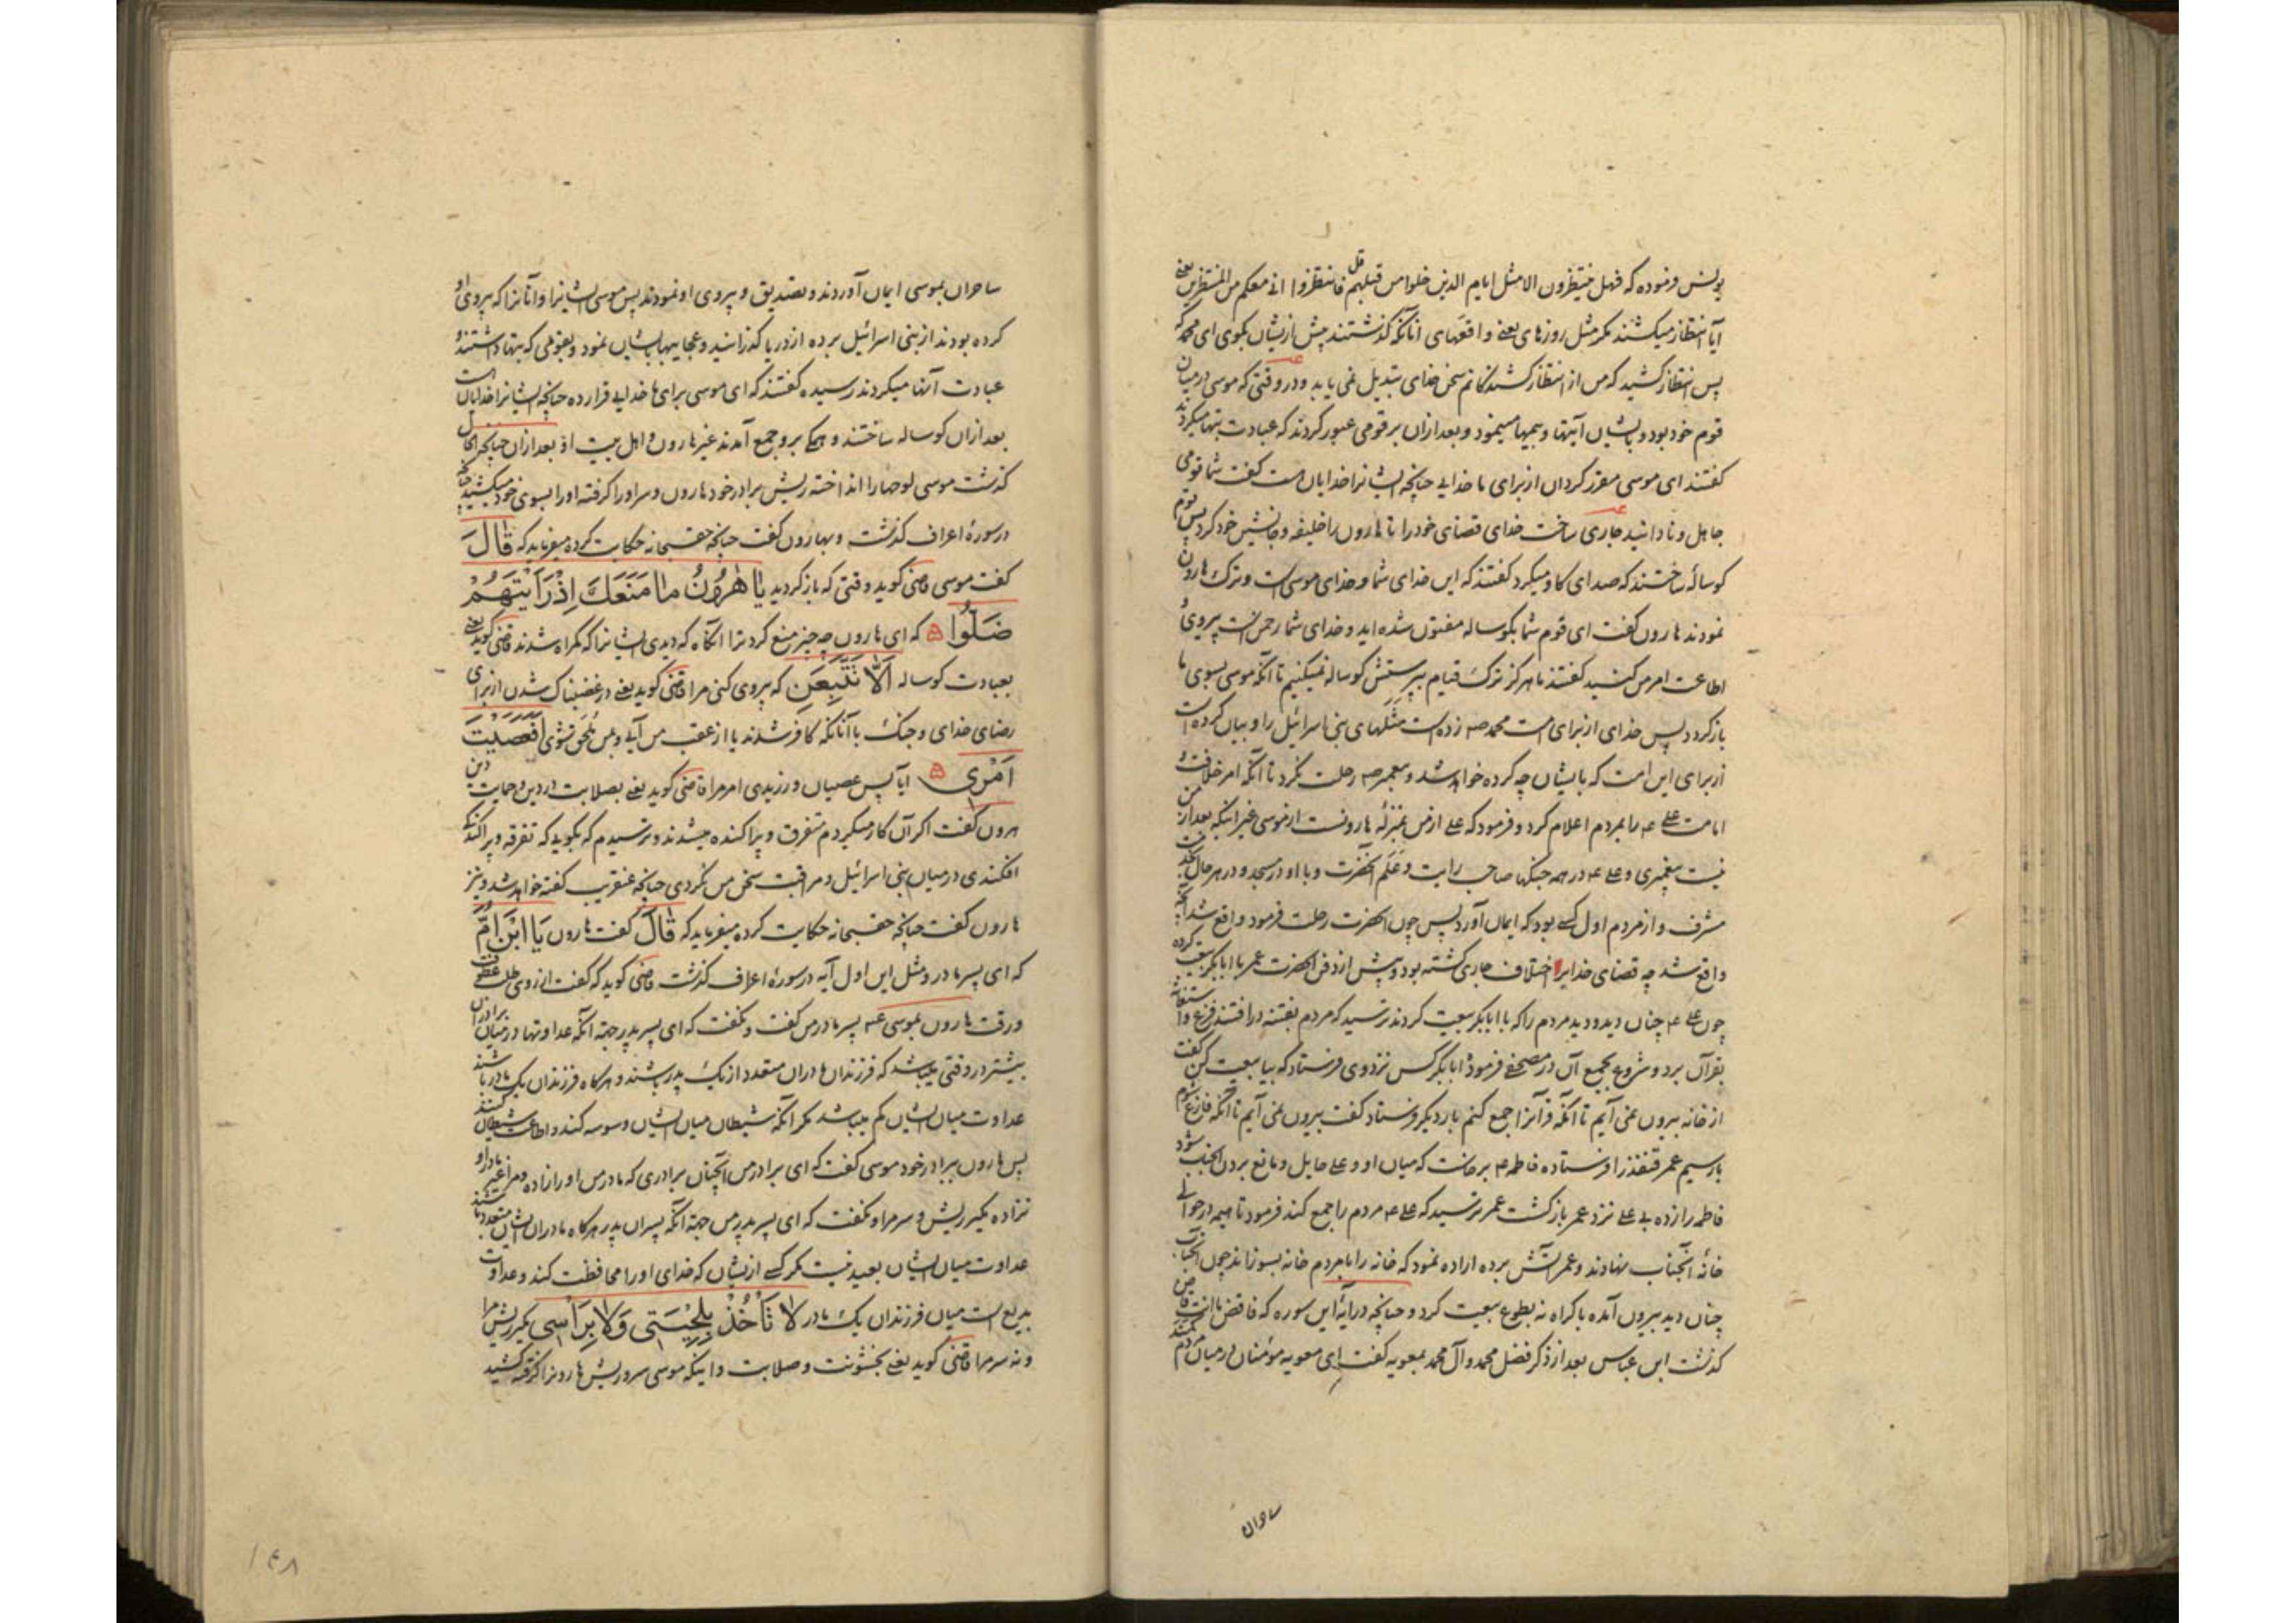 یونس فرموده که فهل ینتظرون الا مثل ایام الذین خلوا من قبلهم قل فانتظروا انی معکم من المنتظرین یعنی
آیا انتظار میکشند مکر مثل روزهای یعنی واقعهای انانکه کذشتند پیش ازیشان بکوی ای محمد که
پس انتظار کشید که من از انتظار کشیدکانم سخن خدای تبدیل نمی یابد و در وقتی که موسی در میان
قوم خود بود و بایشان آیتها و مینمود و بعد ازان بر قومی عبور کردند که عبادت بتها میکردند
کفتند ای موسی مقرر کردان از برای ما خدایی چنانچه ایشانرا خدایان است کفت شما قومی
جاهل و نادانید جاری ساخت خدای قضای خود را تا هارون را خلیفه و جانشین خود کرد پس قوم
کوساله ساختند که صدای کاو میکرد کفتند که این خدای شما و خدای موسی است و ترک هارون
نمودند هارون کفت ای قوم شما بکوساله مفتون شده اید و خدای شما رحمن است پیروی و
اطاعت امر من کنید کفتند ما هرکز ترک قیام بپرستش کوساله نمیکنیم تا آنکه موسی بسوی ما
بازکردد پس خدای از برای امت محمد صه زده است مثلهای بنی اسرائیل را و بیان کرده است
از برای این امت که بایشان چه کرده خواهد شد و پیغمبر صه رحلت نکرد تا آنکه امر خلافت و
امامت علی عه را بمردم اعلام کرد و فرمود که علی از من بمنزله هارونست از موسی غیر اینکه بعد از من
نیست پیغمبری و علی عه در همه جنکها صاحب رایت و علم آنحضرت و با او در مسجد و در هر حال
مشرف و از مردم اول کسی بود که ایمان آورد پس چون آنحضرت رحلت فرمود واقع شد آنچه
واقع شد چه قضای خدا برا اختلاف جاری کشته بود و پیش از دفن آنحضرت عمر با ابابکر بیعت کرده
چون علی عه چنان دید و دید مردم را که با ابابکر بیعت کردند ترسید که مردم بفتنه در افتند فزع و استغاثه
بقرآن برد و شروع بجمع آن در مصحفی فرمود ابابکر کس نزد وی فرستاد که بیا بیعت کن کفت
از خانه بیرون نمی آیم تا آنکه قرآنرا جمع کنم بار دیکر فرستاد کفت بیرون نمی آیم تا آنکه فارغ شوم
بار سیم عمر قنفذ را فرستاده فاطمه عه برخاست که میان او و علی حایل و مانع بردن آنجناب شود
فاطمه را زده بی علی نزد عمر بازکشت عمر ترسید که علی عه مردم را جمع کند فرمود تا هیمه در حوالی
خانه آنجناب نهادند و عمر آتش برده اراده نمود که خانه را با مردم خانه بسوزاند چون آنجناب
چنان دید بیرون آمده باکراه نه بطوع بیعت کرد و چنانچه در آیه این سوره که فاقض ما انت قاض
کذشت ابن عباس بعد از ذکر فضل محمد و آل محمد بمعویه کفت ای معویه مؤمنان در میان مردم
ساحران
ساحران بموسی ایمان آوردند و تصدیق و پیروی او نمودند پس موسی ایشانرا و آنانرا که پیروی او
کرده بودند از بنی اسرائیل برده از دریا کذرانید و عجایبها بایشان نمود و بقومی که بتها داشتند و
عبادت آنها میکردند رسیده کفتند که ای موسی برای ما خدایی قرار ده چنانچه ایشانرا خدایان است
بعد ازان کوساله ساختند و همکی برو جمع آمدند غیر هارون و اهل بیت او و بعد ازان چنانچه
کذشت موسی لوحها را انداخته ریش برادر خود هارون و سر او را کرفته او را بسوی خود میکشید چنانچه
در سوره اعراف کذشت و بهارون کفت چنانچه حقسبحانه حکایت کرده میفرماید که قَالَ
کفت موسی قاضی کوید وقتی که بازکردید یَا هٰرُونُ مَا مَنَعَكَ اِذْ رَاَیْتَهُمْ
ضَلُّوا که ای هارون چه چیز منع کرد ترا آنکاه که دیدی ایشانرا که کمراه شدند قاضی کوید یعنی
بعبادت کوساله اَلَّا تَتَّبِعَنِ که پیروی کنی مرا قاضی کوید یعنی در غضبناک شدن از برای
رضای خدای و جنک با آنانکه کافر شدند یا از عقب من آیی و بمن ملحق شوی اَفَعَصَیْتَ
اَمْرِی آیا پس عصیان ورزیدی امر مرا قاضی کوید یعنی بصلابت در دین و حمایت دین
هرون کفت اکر آن کار میکردم متفرق و پراکنده میشدند و ترسیدم که بکویی که تفرقه و پراکندکی
افکندی در میان بنی اسرائیل و مراقبت سخن من نکردی چنانچه عنقریب کفته خواهد شد و نیز
هارون کفت چنانچه حقسبحانه حکایت کرده میفرماید که قَالَ کفت هارون یَا ابْنَ اُمَّ
که ای پسر مادر و مثل این اول آیه در سوره اعراف کذشت قاضی کوید که کفت از روی طلب عطوفت
و رقت هارون بموسی عه پسر مادر من کفت و نکفت که ای پسر پدر جهة آنکه عداوتها در میان برادران
بیشتر در وقتی میباشد که فرزندان مادران متعدد از یک پدر باشند و هرکاه فرزندان یک مادر باشند
عداوت میان ایشان کم میباشد مکر آنکه شیطان میان ایشان وسوسه کند و اطاعت شیطان کنند
پس هارون ببرادر خود موسی کفت که ای برادر من آنچنان برادری که مادر من او را زاده و مرا غیر مادر او
نزاده مکیر ریش و سر مرا و نکفت که ای پسر پدر من جهة آنکه پسران پدر هرکاه مادران ایشان متعدد باشند
عداوت میان ایشان بعید نیست مکر کسی ازیشان که خدای او را محافظت کند و عداوت
بدیع است میان فرزندان یک مادر لَا تَاْخُذْ بِلِحْیَتِی وَلَا بِرَاْسِی مکیر ریش مرا
و نه سر مرا قاضی کوید یعنی بخشونت و صلابت و اینکه موسی سر و ریش هارونرا کرفته کشید
۱۴۸